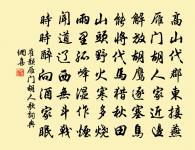 高山代郡東接燕
雁門胡人家近邊
解放胡鷹逐塞鳥
能將代馬獵秋田
山頭野火寒多燒
雨里孤峰濕作煙
聞道遼西無斗戰
時時醉向酒家眠
崔顥雁門胡人歌詞典
網書